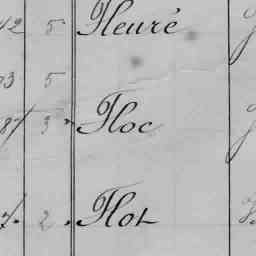 42 5 Fleuré
03 5
87 5 " Floc
7. 2 . Flot